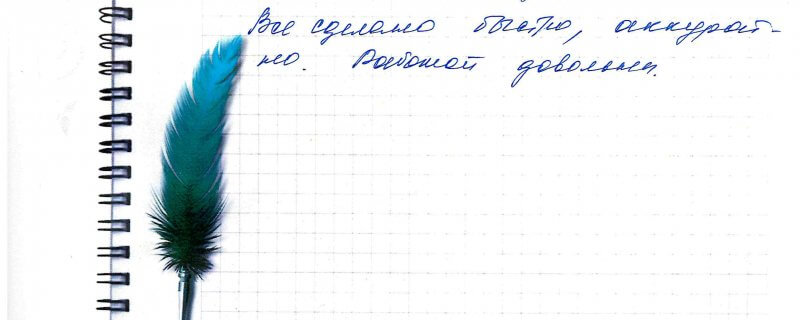 Все сделано быстро, аккурат-
но. Работой довольны.